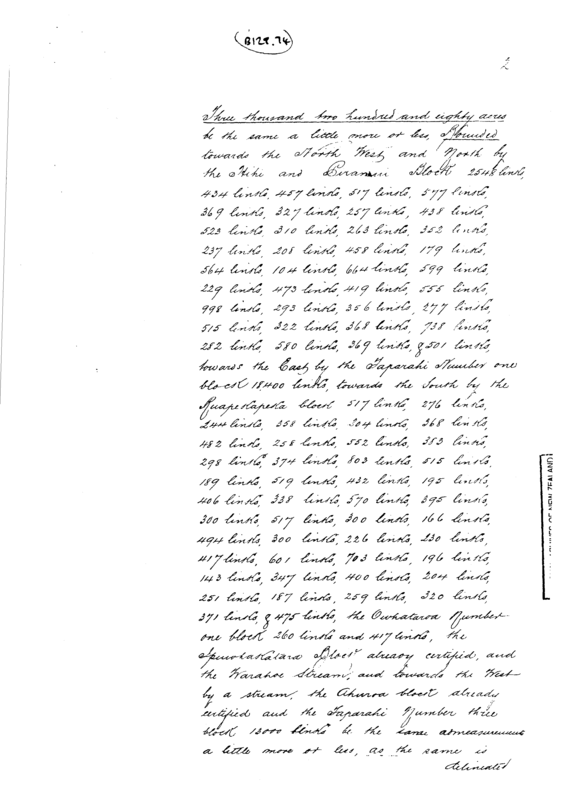 B128.74
2
Three thousand two hundred and eighty acres
be the same a little more or less, Bounded
towards the North West, and North by
the Hihi and Piraunui Block 2548 links,
434 links, 457 links, 517 links, 577 links,
369 links, 327 links, 257 links, 438 links,
523 links, 310 links, 263 links, 352 links,
237 links, 208 links, 458 links, 179 links,
564 links, 104 links, 664 links, 599 links,
229 links, 473 links, 419 links, 555 links,
998 links, 293 links, 356 links, 277 links,
515 links, 322 links, 368 links, 738 links,
282 links, 580 links, 369 links, & 501 links,
towards the East, by the Taparahi Number one
block 18400 links, towards the South by the
Ruapekapeka block 517 links, 276 links,
244 links, 358 links, 304 links, 368 links,
482 links, 258 links, 552 links, 383 links,
298 links, 374 links, 803 links, 515 links,
189 links, 519 links, 432 links, 195 links,
406 links, 338 links, 570 links, 395 links,
300 links, 517 links, 300 links, 166 links,
494 links, 300 links, 226 links, 230 links,
417 links, 601 links, 703 links, 196 links,
143 links, 347 links, 400 links, 204 links,
251 links, 187 links, 259 links, 320 links,
371 links, & 475 links, the Owhataroa Number
one block 260 links and 417 links, the
Block already certified, and
the Warahoe Stream; and towards the West
by a stream, the Ahuroa block already
certified and the Taparahi Number three
block 13000 links be the same admeasurement
a little more or less, as the same is
delineated
OF NEW ZEALAND